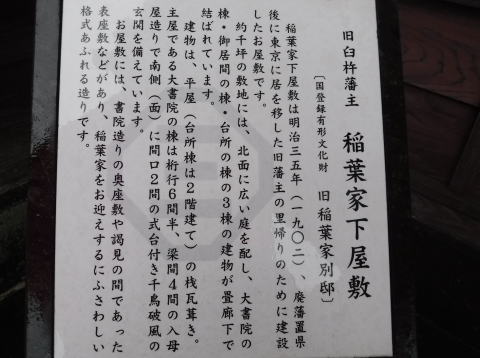 旧臼杵藩主　稲葉家下屋敷
〔国登録有形文化財　旧稲葉家別邸〕
稲葉家下屋敷は明治三五年（一九〇二）、廃藩置県
後に東京に居を移した旧藩主の里帰りのために建設
したお屋敷です。
約千坪の敷地には、北面に広い庭を配し、大書院の
棟・御居間の棟・台所の棟の3棟の建物が畳廊下で
結ばれています。
建物は、平屋（台所棟は2階建て）の桟瓦葺き。
主屋である大書院の棟は桁行6間半、梁間4間の入母
屋造りで南側（面）に間口2間の式台付き千鳥破風の
玄関を備えています。
お屋敷には、書院造りの奥座敷や謁見の間であった
表座敷などがあり、稲葉家をお迎えするにふさわしい
格式あふれる造りです。